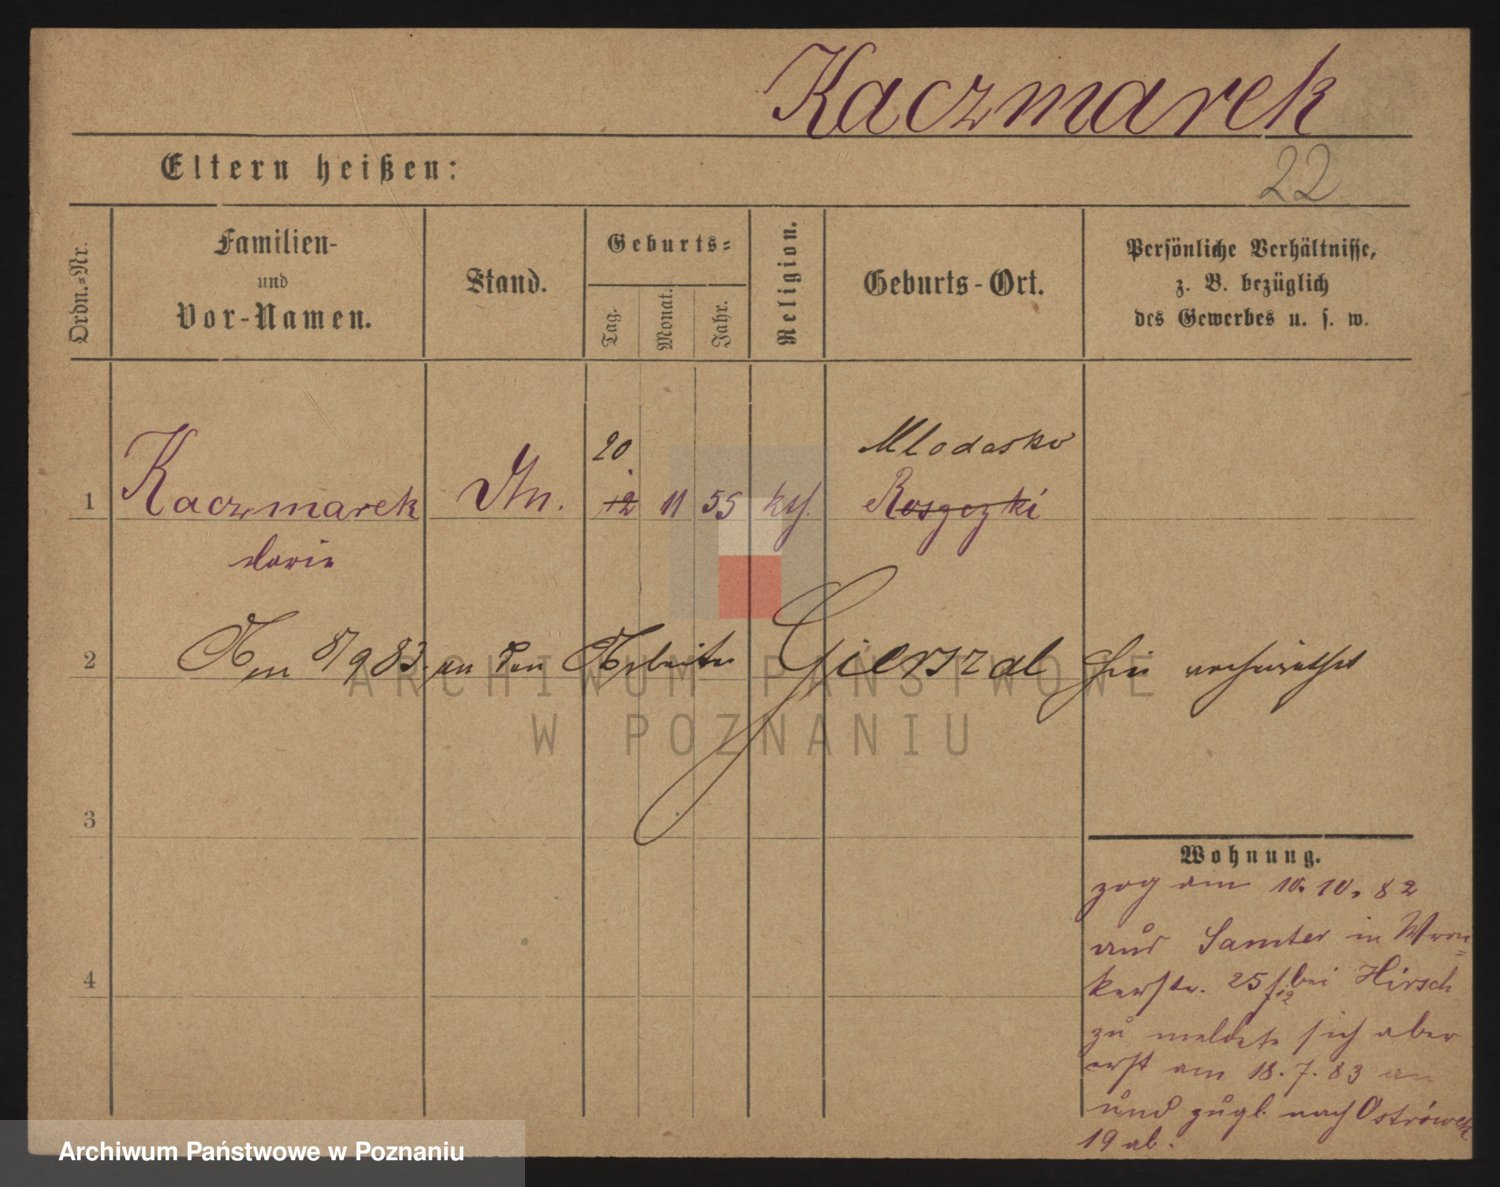 Kaczmarek
22
Eltern heißen:
Ordn.-Nr.
Familien-
und
Vor-Namen.
Stand.
Geburts-
Tag.
Monat.
Jahr.
Religion.
Geburts-Ort.
Persönliche Verhältnisse,
z. B. bezüglich
des Gewerbes u. s. w.
20 Mlodasko
1 Kaczmarek 12 11 55 kth. Roszczki
2 Am 8/9 83 an den Arbeiter Gierszal hier verheirathet
3
Wohnung.
zog am 10. 10. 82
aus Samter in Wron=
kerstr. 25 bei Hirsch
zu meldete sich aber
erst am 18. 7. 83 an
und zugl. nach Ostrówek
19 ab.
4
ARCHIWUM PAŃSTWOWE
W POZNANIU
Archiwum Państwowe w Poznaniu